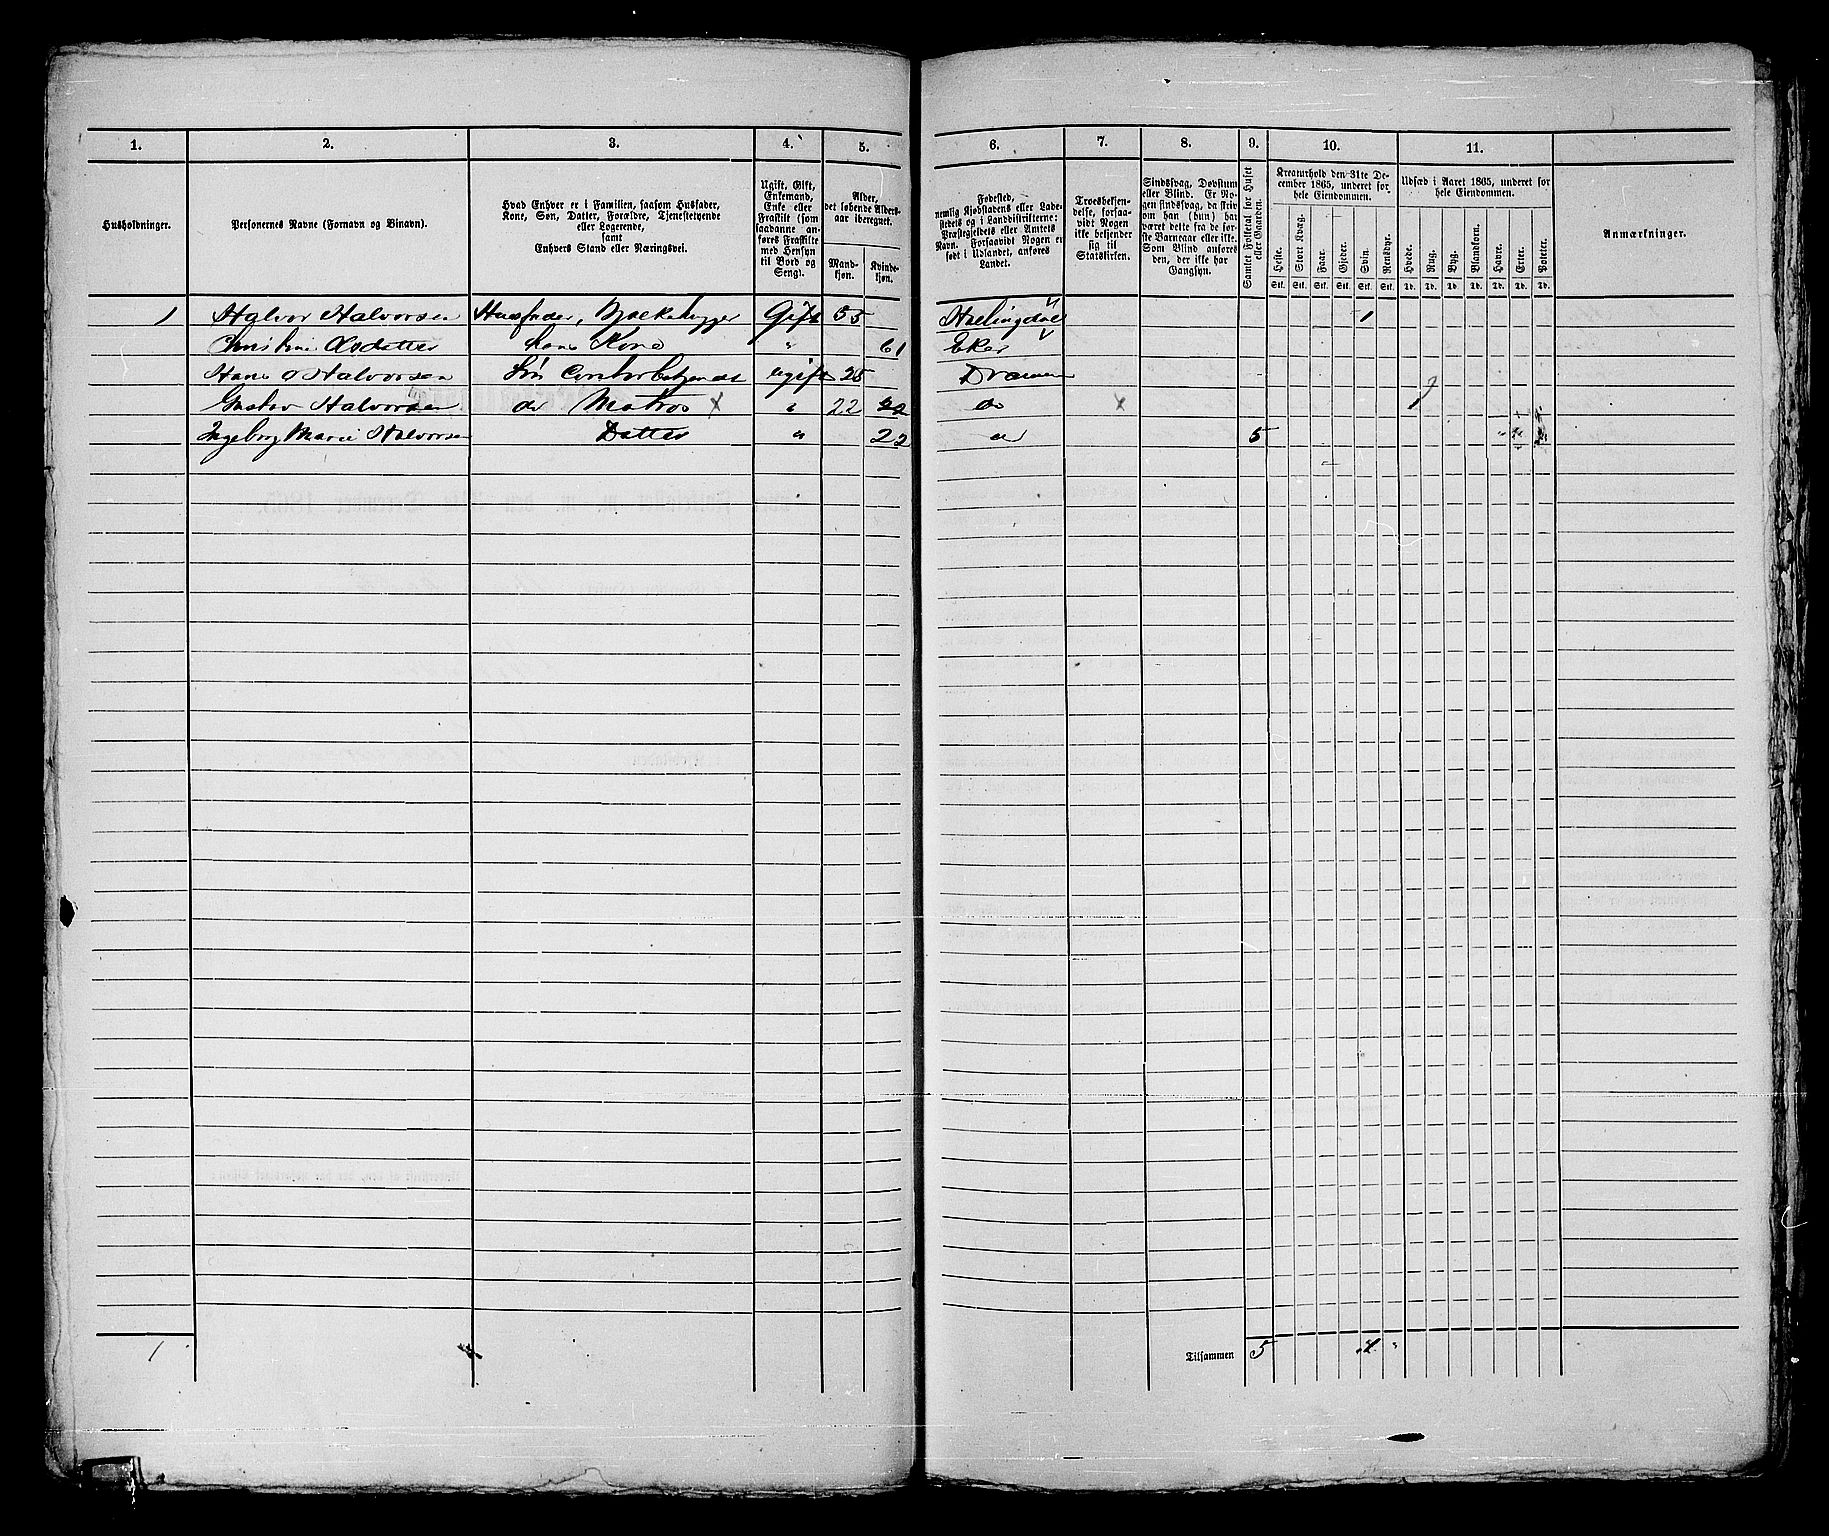 1. 2. 3. 4. 5. 6. 7. 8. 9. 10. 11.
Husholdninger.
Personernes Navne (Fornavn og Binavn).
Hvad Enhver er i Familien, saasom Husfader,
Kone, Søn, Datter, Forældre, Tjenestetyende
eller Logerende,
samt
Enhvers Stand eller Næringsvei.
Ugift, Gift,
Enkemand,
Enke eller
Fraskilt (som
saadanne an-
føres Fraskilte
med Hensyn
til Bord og
Seng).
Alder,
det løbende Alders-
aar iberegnet.
Mand-
kjøn.
Kvinde-
kjøn.
Fødested,
nemlig Kjøbstadens eller Lade-
stedets og i Landdistrikterne:
Præstegjeldets eller Amtets
Navn. Forsaavidt Nogen er
født i Udlandet, anføres
Landet.
Troesbekjen-
delse, forsaa-
vidt Nogen
ikke bekjender
sig til
Statskirken.
Sindssvag, Døvstum
eller Blind. Er No-
gen sindssvag, da skriv
om han (hun) har
været dette fra de før-
ste Barneaar eller ikke.
Som Blind anføres
den, der ikke har
Gangsyn.
Samlet Folketal for Huset
eller Gaarden.
Kreaturhold den 31te De-
cember 1865, underet for
hele Eiendommen.
Heste. Stort Kvæg. Faar. Gjeder. Svin. Rensdyr.
Stk. Stk. Stk. Stk. Stk. Stk.
Udsæd i Aaret 1865, underet for
hele Eiendommen.
Hvede. Rug. Byg. Blandkorn. Havre. Erter. Poteter.
Td. Td. Td. Td. Td. Td. Td.
Anmærkninger.
1 Halvor Halvorsen Huusfader, Bjelkehugger Gift 55 Hallingdal 1
Christine Osdatter hans Kone " 61 Eker
Hans O Halvorsen Søn Contorbetjendt ugift 25 Drammen
Gustav Halvorsen do Matros X " 22 do X
Ingeborg Marie Halvorsen Datter " 22 do 5
1 Tilsammen 5 " 1 "